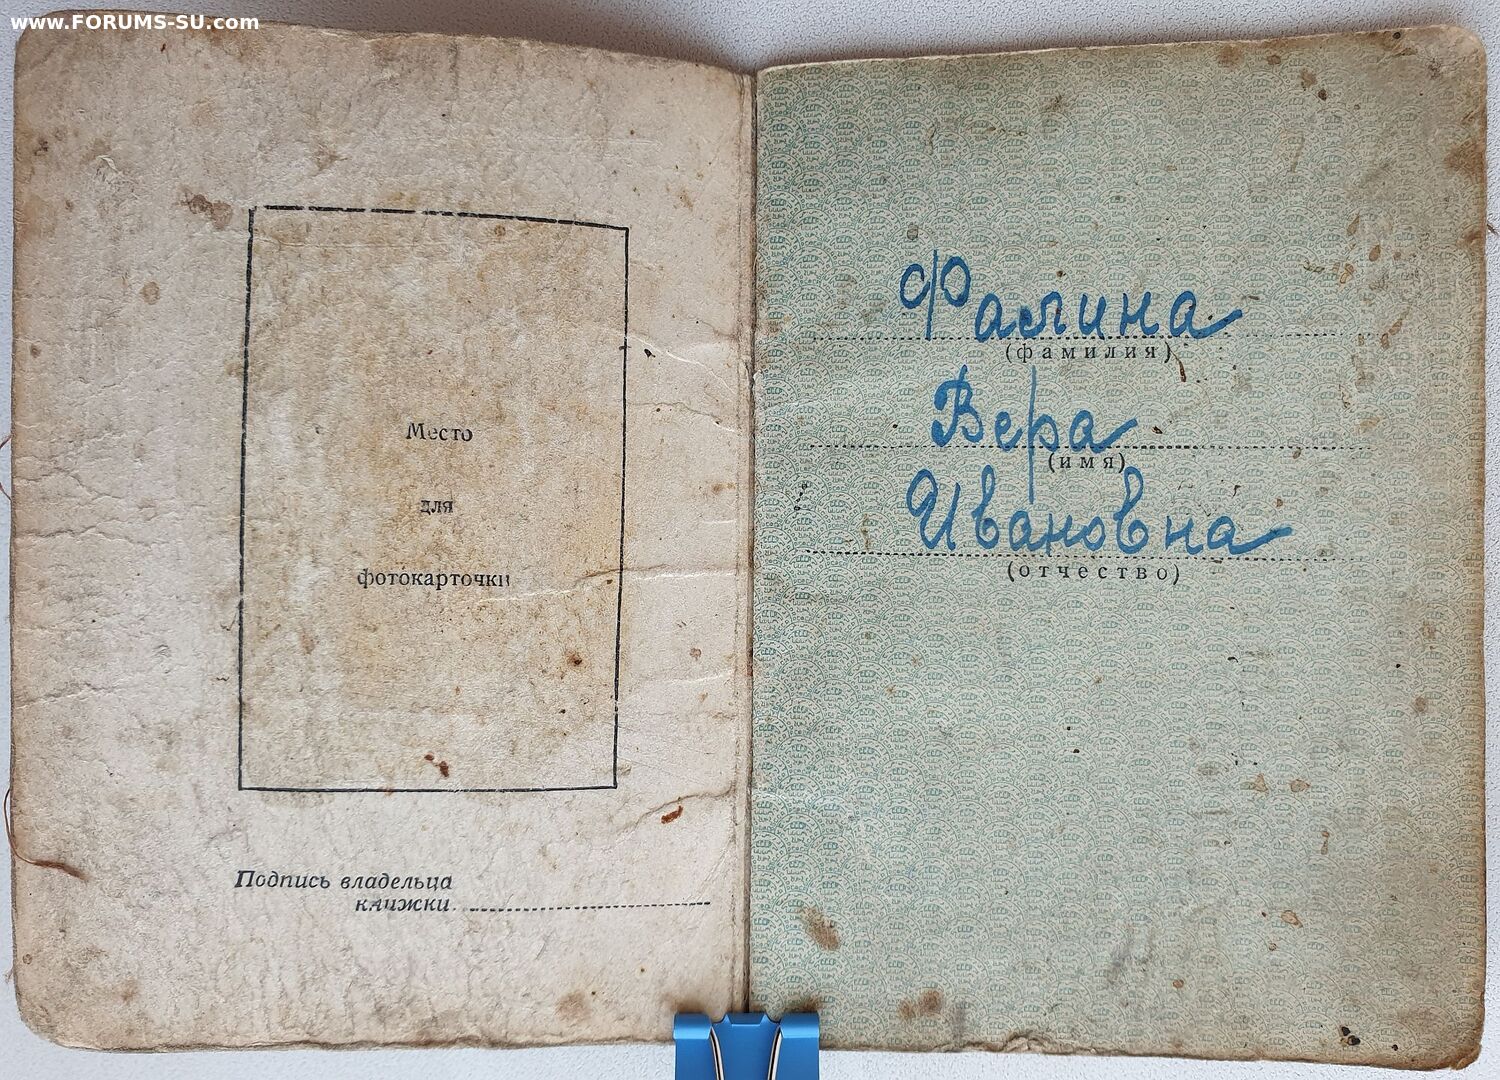 www.FORUMS-SU.com
Место
для
фотокарточки
Подпись владельца
книжки
Фалина
(фамилия)
Вера
(имя)
Ивановна
(отчество)